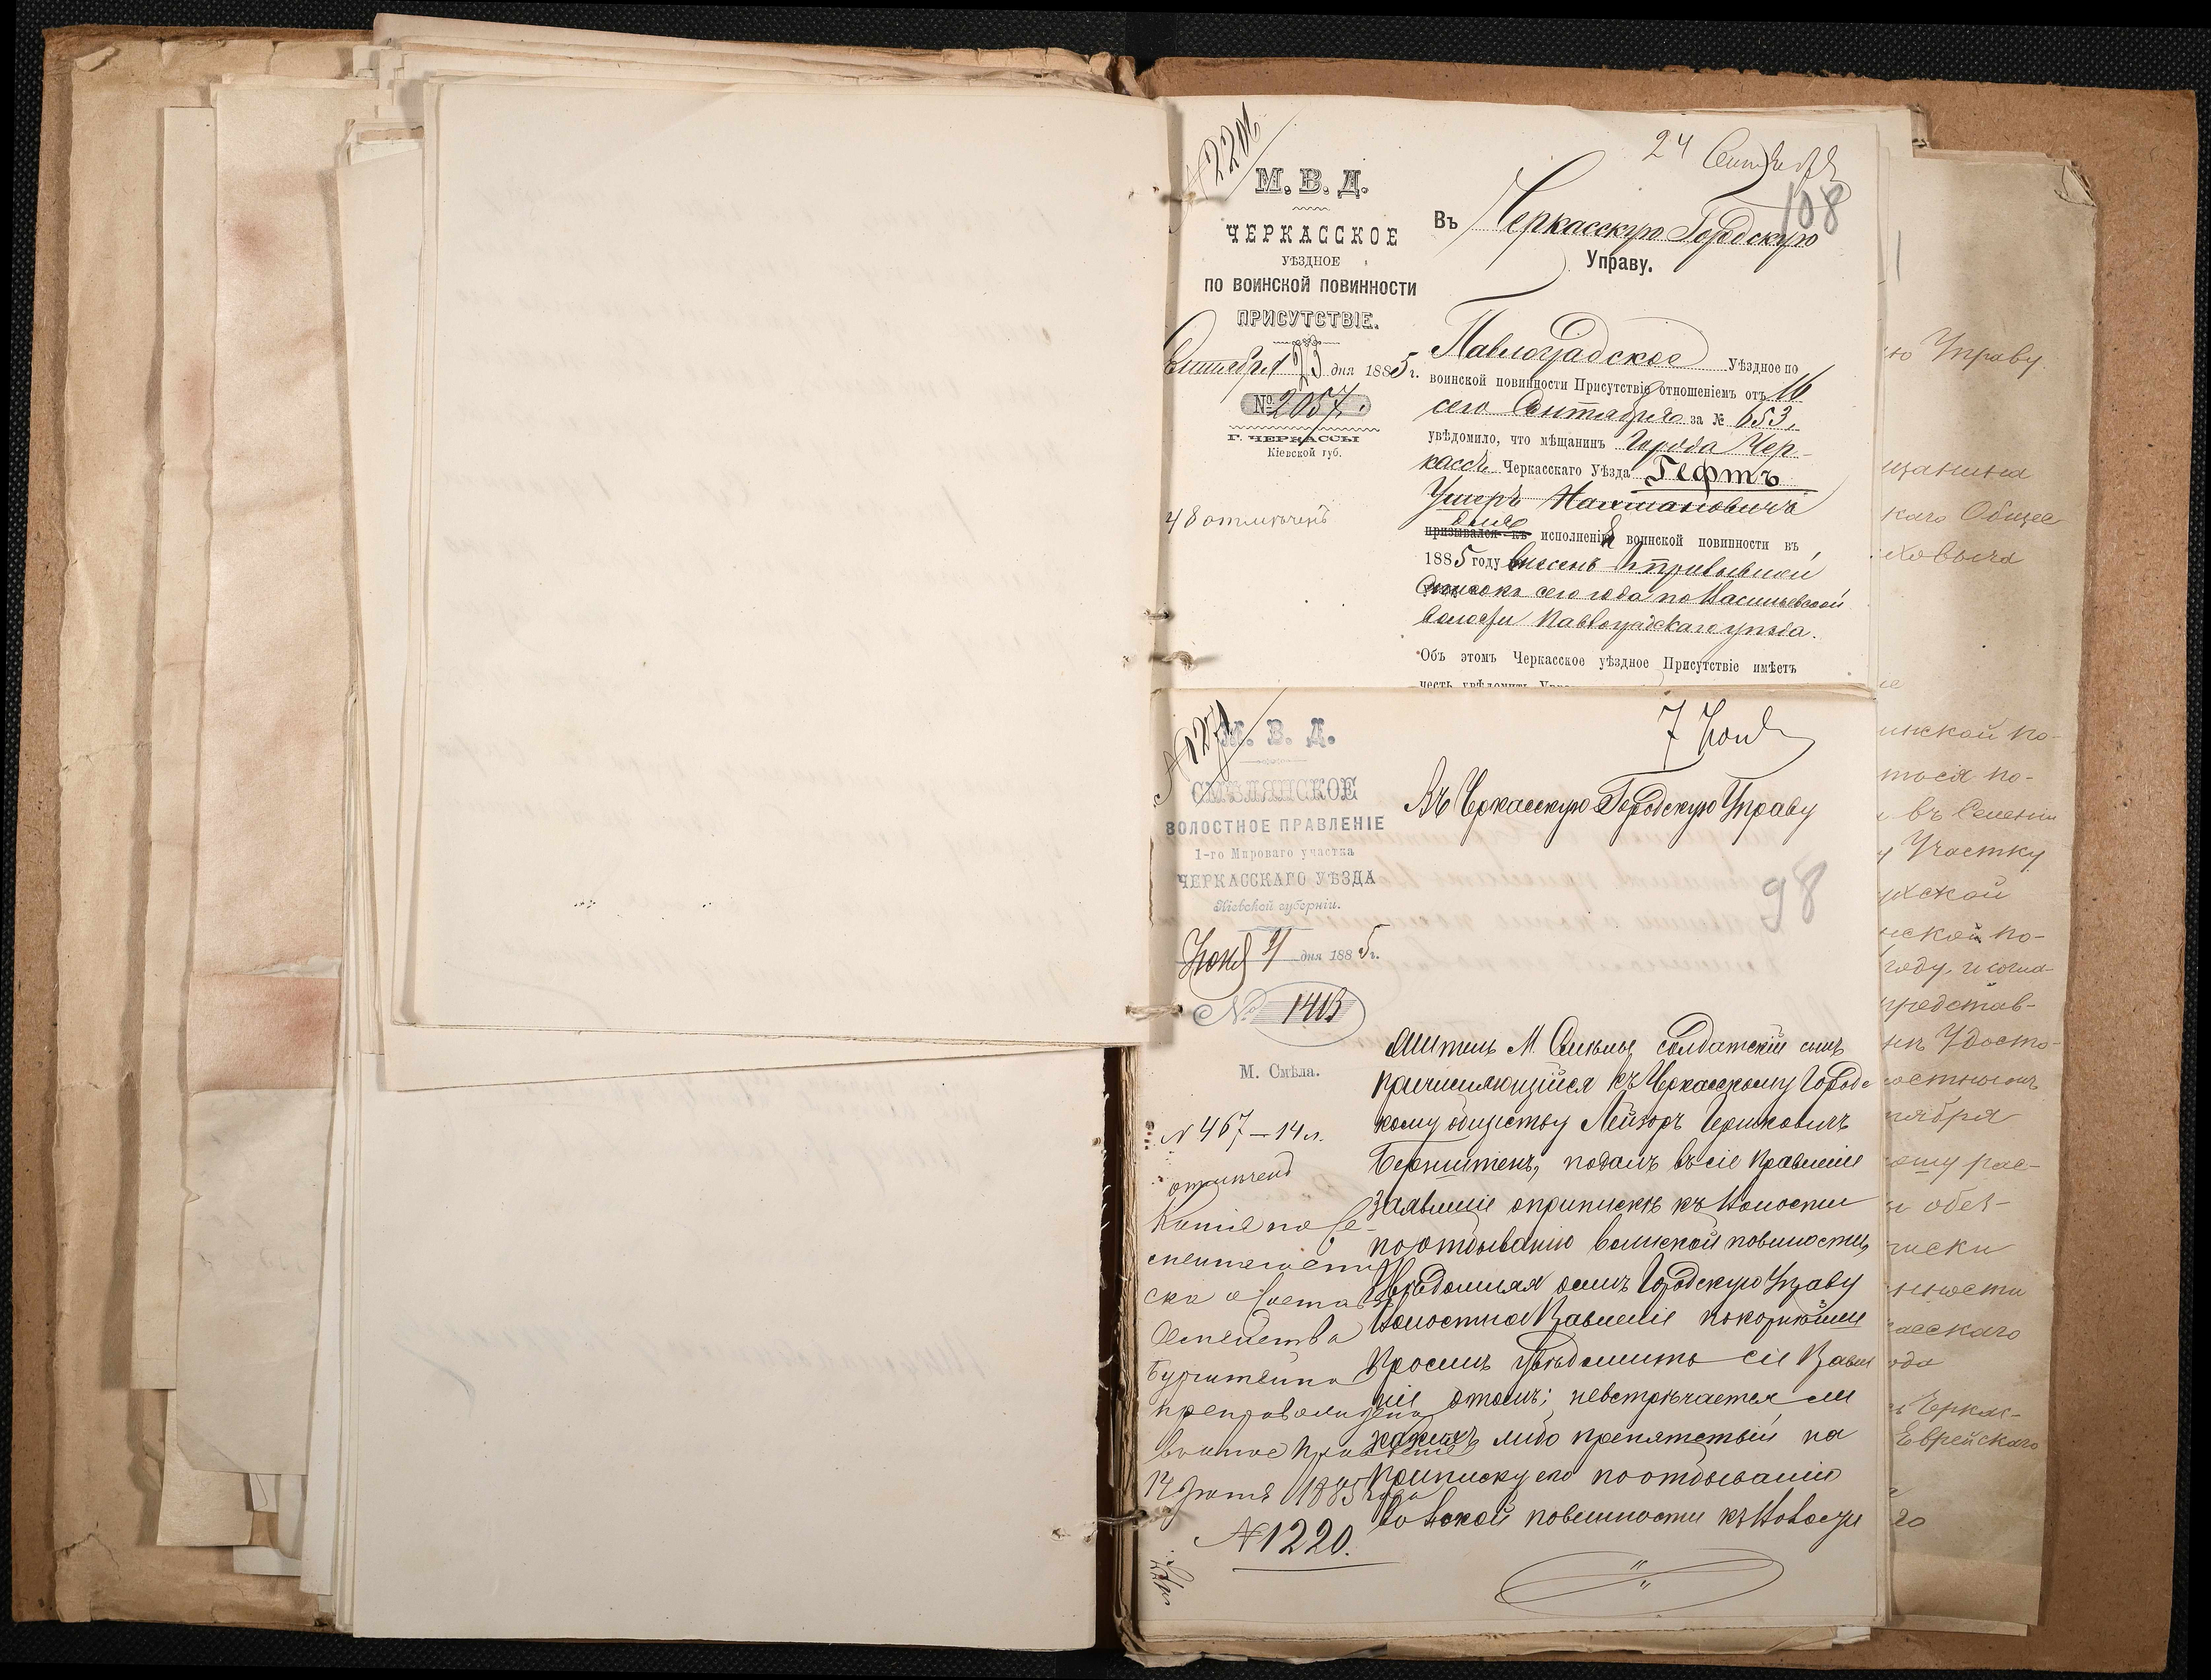 № 2201
М. В. Д.
ЧЕРКАССКОЕ
УѢЗДНОЕ
ПО ВОИНСКОЙ ПОВИННОСТИ
ПРИСУТСТВІЕ.
Сентября 23 дня 1885 г.
№ 2057.
Г. ЧЕРКАССЫ
Кіевской губ.
48 отмѣченъ
24 Сентября
108
Въ Черкасскую Городскую
Управу.
Павлоградское Уѣздное по
воинской повинности Присутствіе отношеніемъ отъ 16
сего Сентября за № 653,
увѣдомило, что мѣщанинъ города Чер-
кассъ Черкасскаго Уѣзда Гефтъ
Ушеръ Нахмановичъ
для
призывался къ исполненія воинской повинности въ
1885 году внесенъ въ призывной
списокъ сего года по Васильевской
волости Павлоградскаго уѣзда.
Объ этомъ Черкасское уѣздное Присутствіе имѣетъ
честь увѣдомить
№ 1271
М. В. Д.
СМѢЛЯНСКОЕ
ВОЛОСТНОЕ ПРАВЛЕНІЕ
1-го Мироваго участка
ЧЕРКАССКАГО УѢЗДА
Кіевской губерніи.
Іюня 4 дня 1885 г.
№ 1413
М. Смѣла.
№ 467 — 14 л.
отмѣчено
Копія по Се-
мейнаго спи-
ска о состав
Семейства
препровождена
волостное Правленіе
12 Іюня 1885 года
№ 1220.
7 Іюня
Въ Черкасскую Городскую Управу
98
Житель М. Смѣлы, солдатскій сынъ
причисляющійся къ Черкасскому Городс
кому обществу Лейзоръ Гершковичъ
Бернштенъ, подалъ въ сіе Правленіе
Заявленіе о припискѣ къ Волости
по отбыванію воинской повиности,
Увѣдомляя о семъ Городскую Управу
Волостное Правленіе покорнѣйше
просить увѣдомить сіе Правле
ніе о томъ; невстрѣчается ли
какихъ либо препятствій на
приписку его по отбыванію
воинской повинности къ Волости
ю Управу
щанина
каго Общес
ховича
инской по-
тося по-
въ Селеніи
у Участку
нской по-
году, и согла-
представ-
Удосто-
ностнымъ
ября
ому рас-
обез-
писки
нности
асскаго
ода
Черкас-
Еврейскаго
20